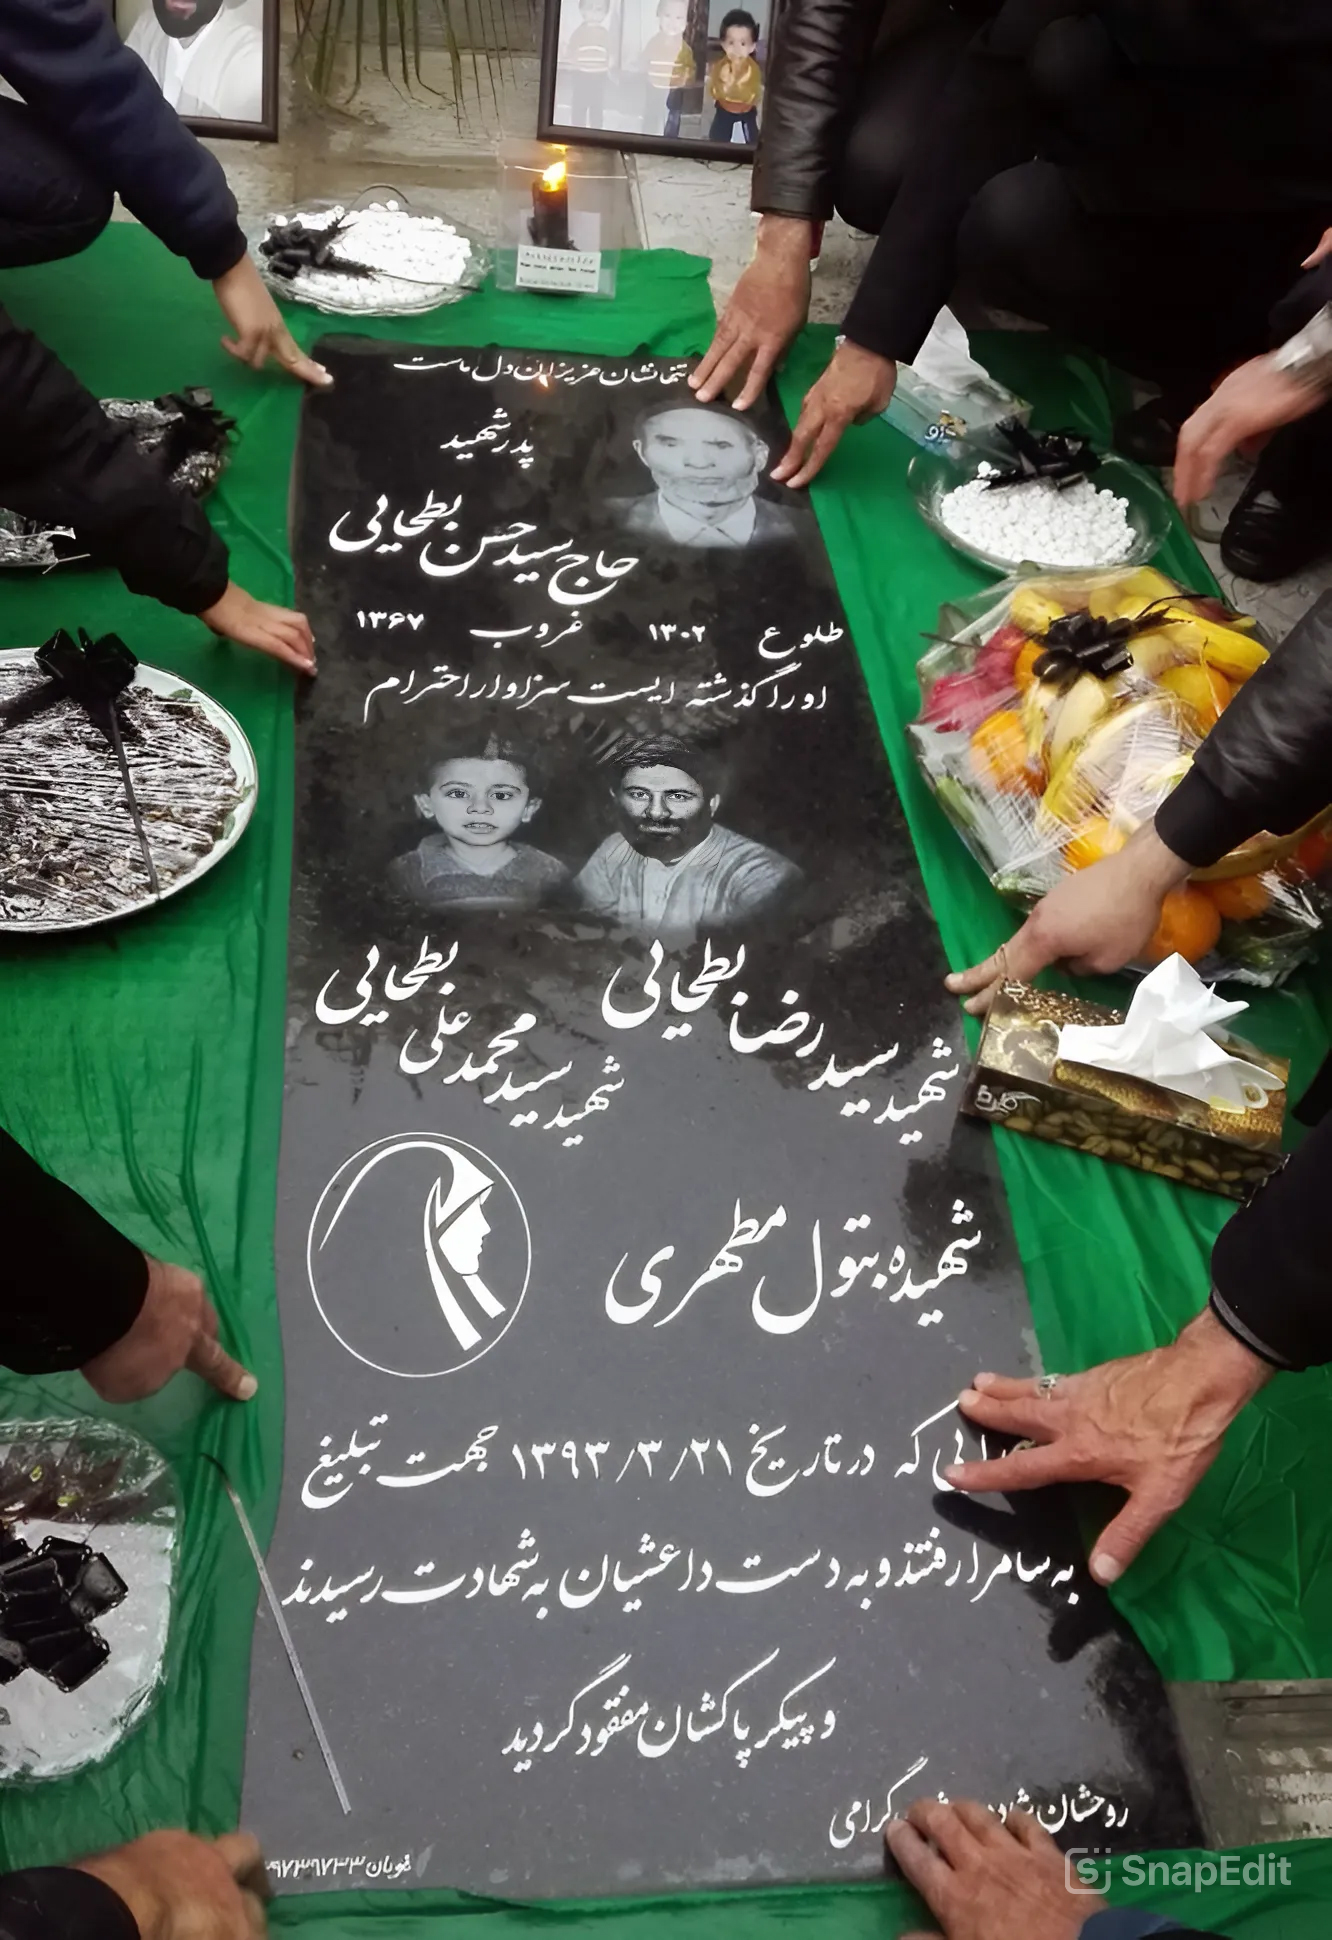 تنها نشان عزیزان دل ماست
پدر شهید
حاج سید حسن بطحایی
طلوع ۱۳۰۲ غروب ۱۳۶۷
او را گذشته ایست سزاوار احترام
شهید سید رضا بطحایی
شهید سید محمد علی بطحایی
شهیده بتول مطهری
که در تاریخ ۱۳۹۳/۳/۲۱ جهت تبلیغ
به سامرا رفتند و به دست داعشیان به شهادت رسیدند
و پیکر پاکشان مفقود گردید
روحشان شاد گرامی
SnapEdit